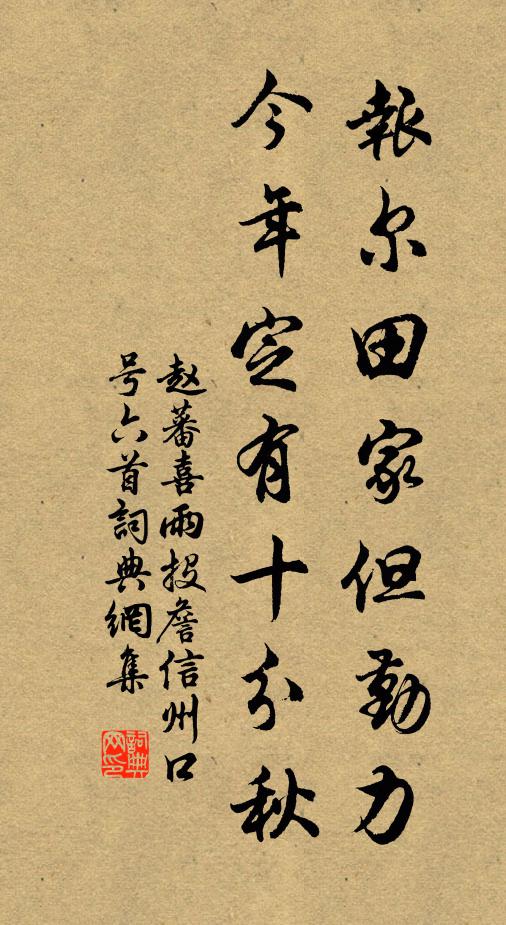 報尔田家但勤力
今年定有十分秋
赵蕃喜雨投詹信州口
号六首詞典網集
詞典
网印